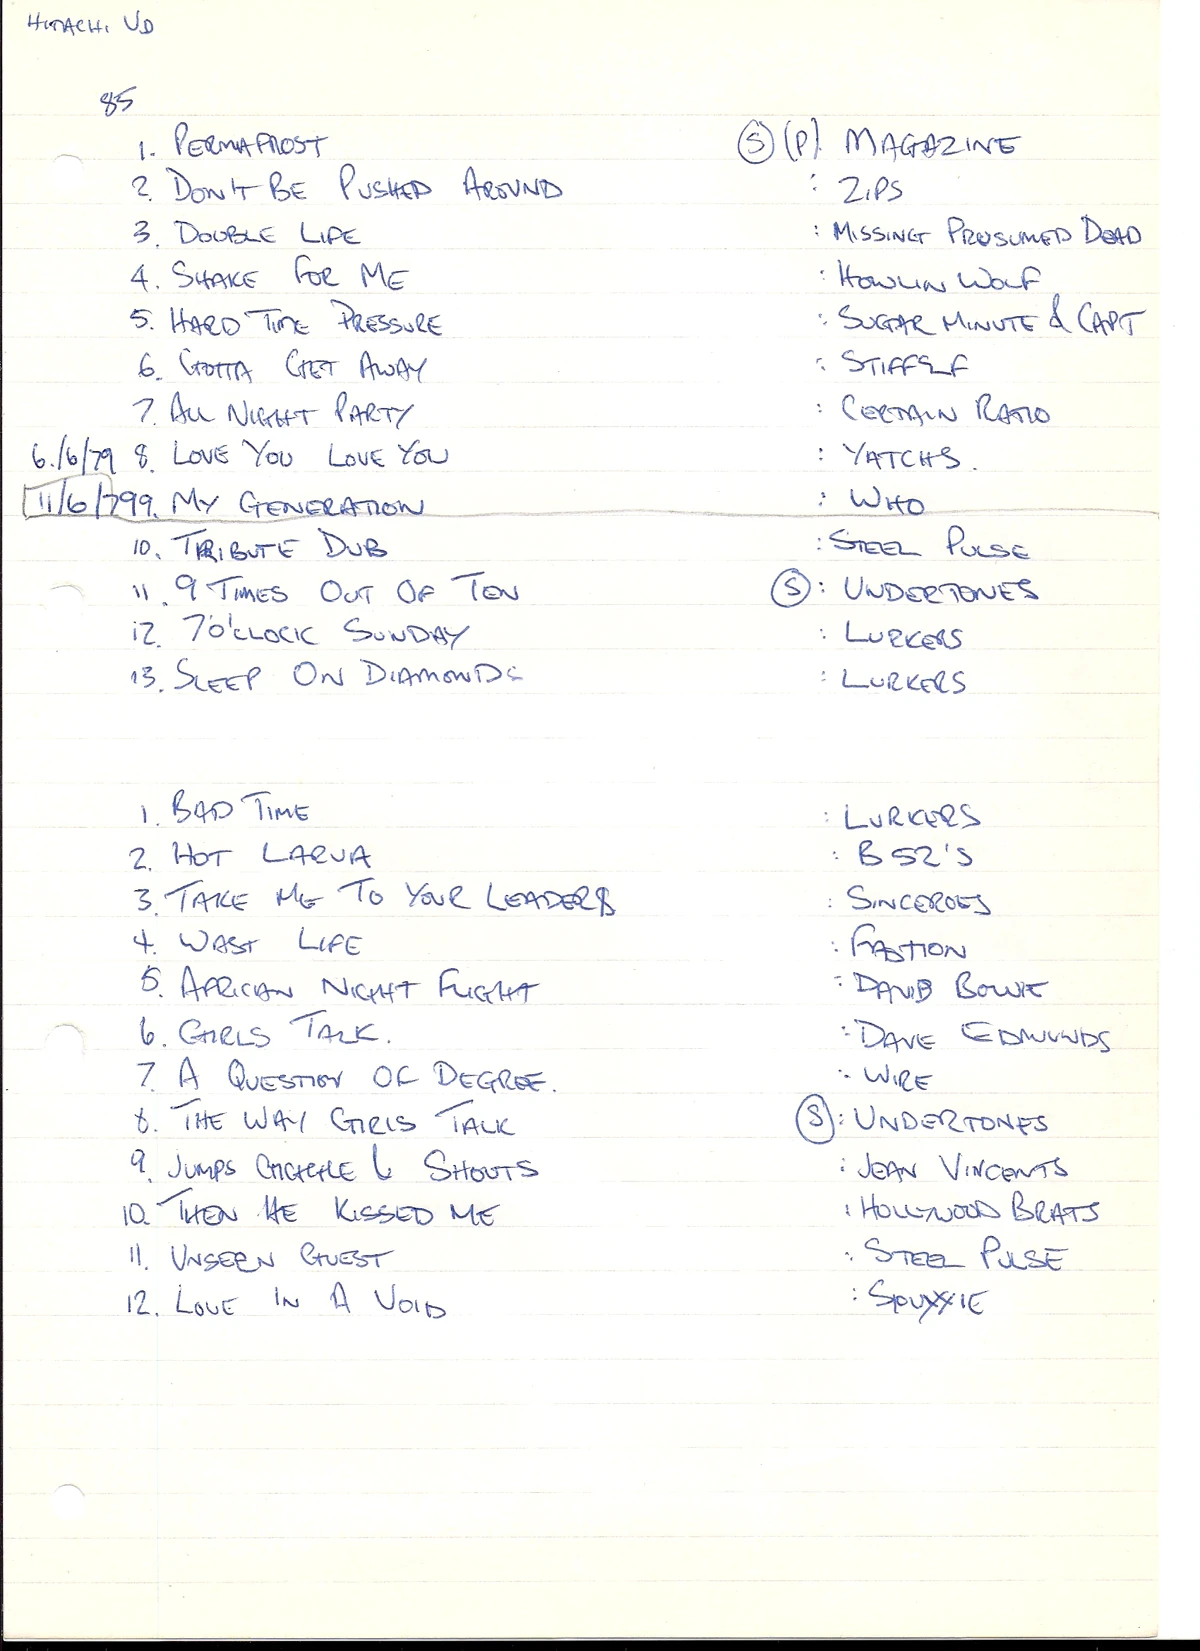 HITACHI UD
85
1. PERMAFROST (S) (P). MAGAZINE
2. DON'T BE PUSHED AROUND : ZIPS
3. DOUBLE LIFE : MISSING PRESUMED DEAD
4. SHAKE FOR ME : HOWLIN WOLF
5. HARD TIME PRESSURE : SUGAR MINUTE & CAPT
6. GOTTA GET AWAY : STIFF LF
7. ALL NIGHT PARTY : CERTAIN RATIO
6./6/79 8. LOVE YOU LOVE YOU : YATCHS.
11/6/79 9. MY GENERATION : WHO
10. TRIBUTE DUB : STEEL PULSE
11. 9 TIMES OUT OF TEN (S) : UNDERTONES
12. 7 O'CLOCK SUNDAY : LURKERS
13. SLEEP ON DIAMONDS : LURKERS
1. BAD TIME : LURKERS
2. HOT LARVA : B 52'S
3. TAKE ME TO YOUR LEADERS : SINCEROES
4. WAST LIFE : FASTION
5. AFRICAN NIGHT FLIGHT : DAVID BOWIE
6. GIRLS TALK. : DAVE EDMUNDS
7. A QUESTION OF DEGREE. : WIRE
8. THE WAY GIRLS TALK (S) : UNDERTONES
9. JUMPS GIGGLE & SHOUTS : JEAN VINCENTS
10. THEN HE KISSED ME : HOLLYWOOD BRATS
11. UNSEEN GUEST : STEEL PULSE
12. LOVE IN A VOID : SIOUXXIE